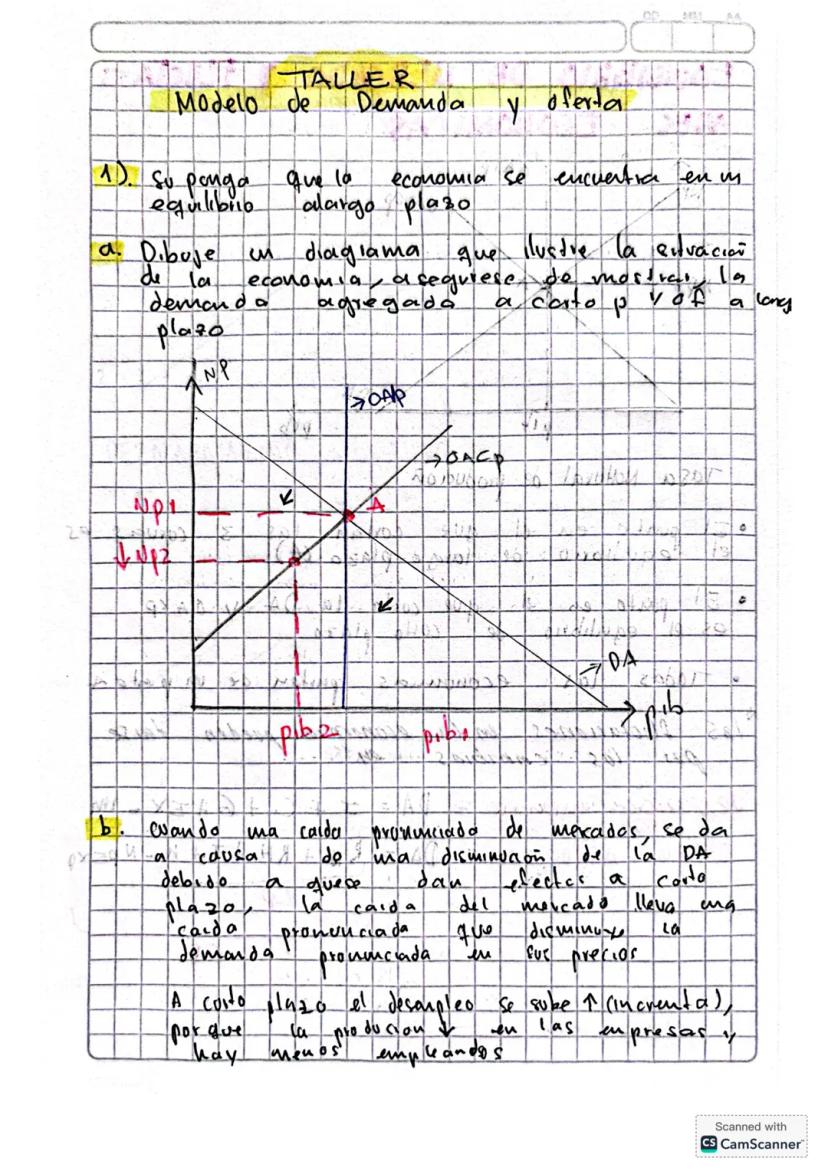 TALLER
Modelo de Demanda y oferta
1). Suponga que la economia se encuentra en un
equilibrio alargo plazo
a. Dibuje un diagrama que ilustre la situacion
de la economia, asegurese de mostrar, la
demanda agregada a corto p y of a largo
plazo
NP
→OAlp
→OACp
Np1
A
↓Np2
→DA
pib
pib2
pib1
b. Cuando una caida pronunciada de mercados, se da
a causa de una disminución de la DA
debido a quese dan efectos a corto
plazo, la caida del mercado lleva una
caida pronunciada que disminuye la
demanda pronunciada en sus precios
A corto plazo el desempleo se sube ↑ (incrementa),
porque la produccion ↓ en las empresas y
hay menos empleandos
Scanned with
CS CamScanner